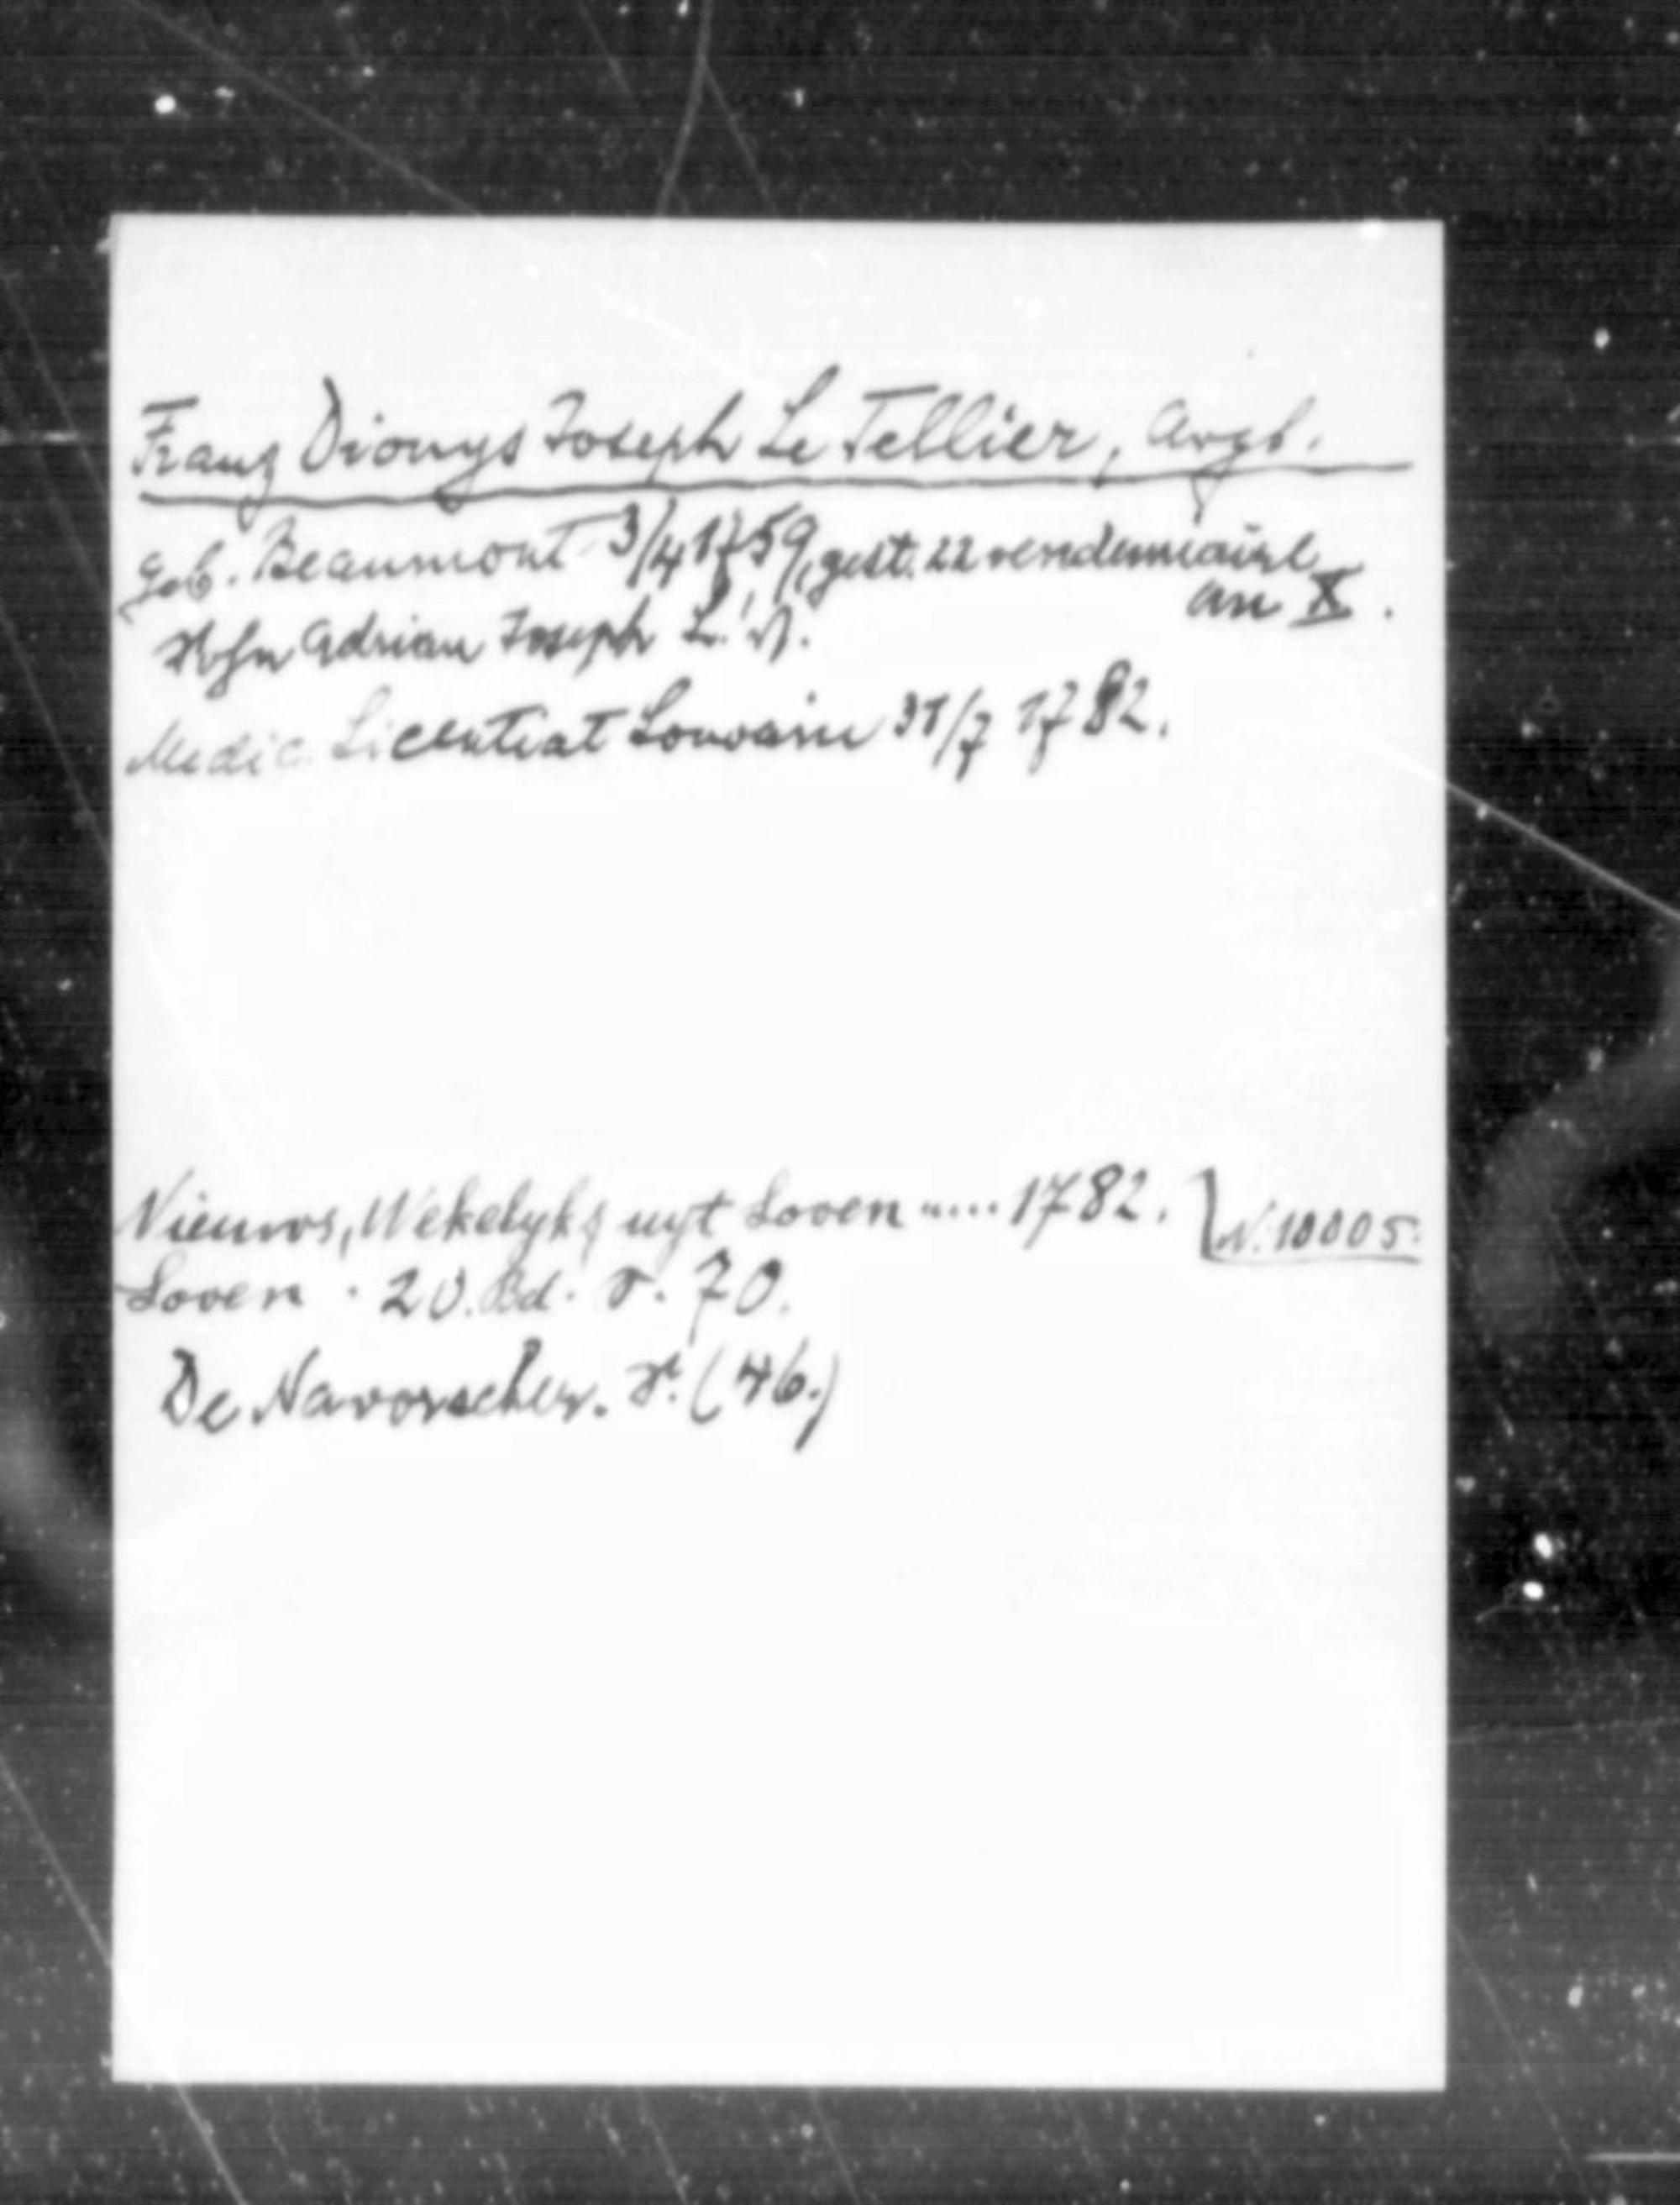 Franz Dionys Joseph Le Tellier, Argt.
geb. Beaumont 3/4 1759, gest. 22 vendemiaire
an X.
Adrian Joseph L. T.
Medic. Licentiat Louvain 31/7 1782.
Nieuws, Wekelyks uyt Loven ..... 1782. N. 10005.
Loven. 20. Bd. S. 70.
De Navorscher. S. (46.)